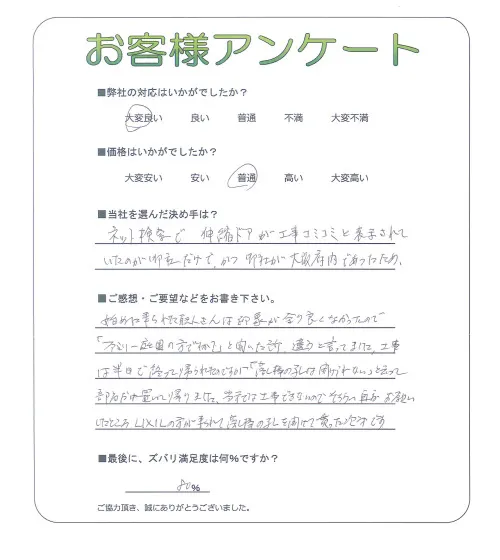 お客様アンケート
■弊社の対応はいかがでしたか？
大変良い 良い 普通 不満 大変不満
■価格はいかがでしたか？
大変安い 安い 普通 高い 大変高い
■当社を選んだ決め手は？
ネット検索で 伸縮ドアが工事コミコミと表示されて
いたのが御社だけで、かつ 御社が大阪府内であったため。
■ご感想・ご要望などをお書き下さい。
始めに来られた職人さんは印象が余り良くなかったので
の方ですか？」と聞いた所、違うと言ってました。工事
は半日で終って帰られた
置いて帰りました。 工事できないので お願い
したところLIXILの方が来られて 孔を開けて貰った次第です
■最後に、ズバリ満足度は何％ですか？
80％
ご協力頂き、誠にありがとうございました。